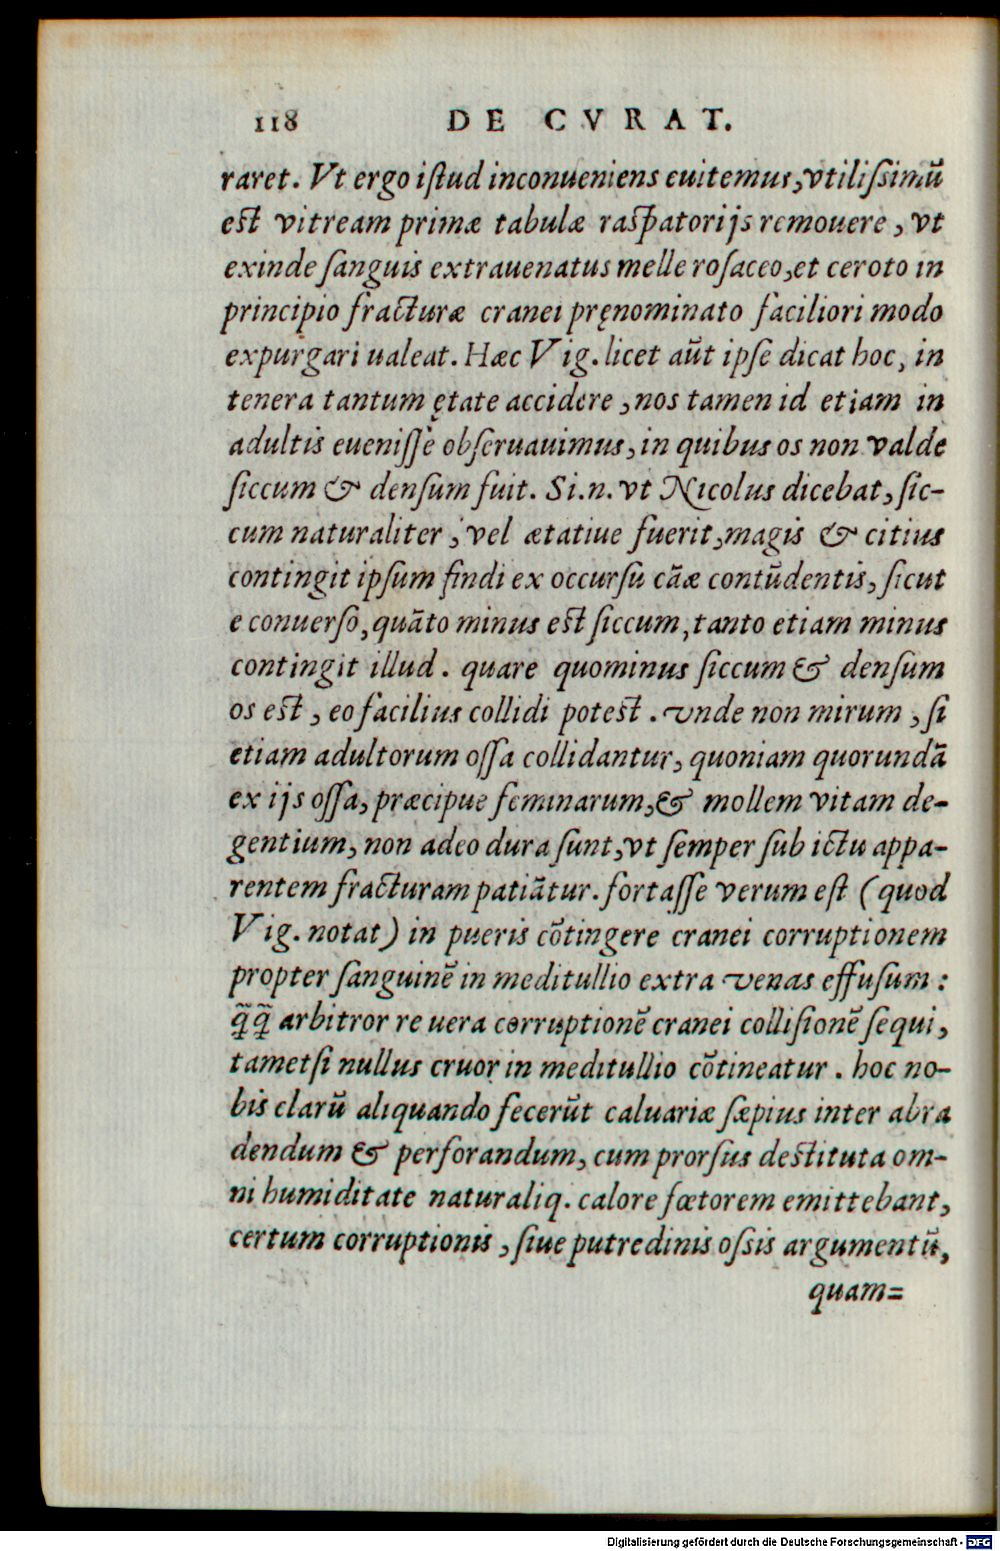 118 DE CVRAT.
raret. Vt ergo iſtud inconueniens euitemus, vtiliſsimū
eſt vitream primæ tabulæ raſpatorijs remouere, vt
exinde ſanguis extrauenatus melle roſaceo, et ceroto in
principio fracturæ cranei pręnominato faciliori modo
expurgari ualeat. Hæc Vig. licet aūt ipſe dicat hoc, in
tenera tantum ętate accidere, nos tamen id etiam in
adultis eueniſſe obſeruauimus, in quibus os non valde
ſiccum & denſum fuit. Si.n. vt Nicolus dicebat, ſic-
cum naturaliter, vel ætatiue fuerit, magis & citius
contingit ipſum findi ex occurſu cāæ contūdentis, ſicut
e conuerſo, quāto minus eſt ſiccum, tanto etiam minus
contingit illud. quare quominus ſiccum & denſum
os eſt, eo facilius collidi poteſt. vnde non mirum, ſi
etiam adultorum oſſa collidantur, quoniam quorundā
ex ijs oſſa, præcipue feminarum, & mollem vitam de-
gentium, non adeo dura ſunt, vt ſemper ſub ictu appa-
rentem fracturam patiātur. fortaſſe verum eſt (quod
Vig. notat) in pueris cōtingere cranei corruptionem
propter ſanguinē in meditullio extra venas effuſum:
q̃q̃ arbitror re uera corruptionē cranei colliſionē ſequi,
tametſi nullus cruor in meditullio cōtineatur. hoc no-
bis clarū aliquando fecerūt caluariæ ſæpius inter abra
dendum & perforandum, cum prorſus deſtituta om-
ni humiditate naturaliq. calore fœtorem emittebant,
certum corruptionis, ſiue putredinis oſsis argumentū,
quam=
Digitalisierung gefördert durch die Deutsche Forschungsgemeinschaft - DFG